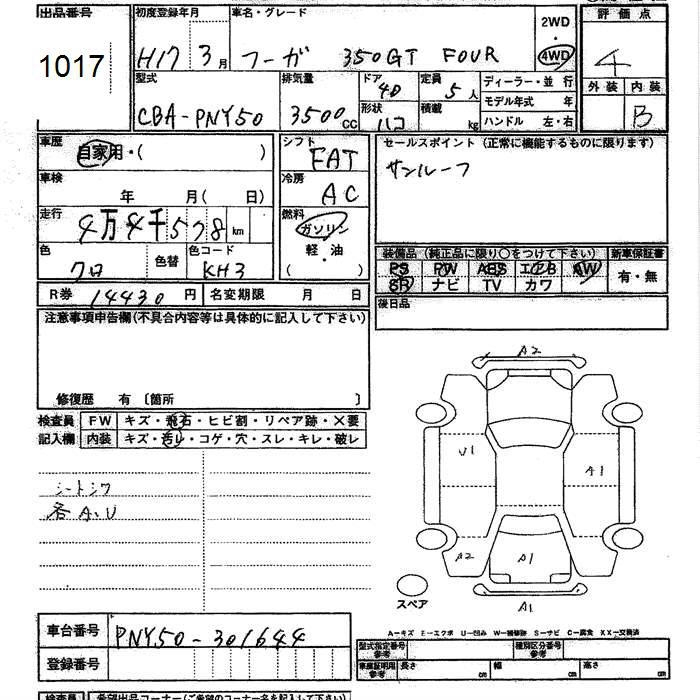 出品番号 初度登録年月 車名・グレード 2WD 評価点
1017 H17 3月 フーガ 350GT FOUR 4WD 4
型式 排気量 ドア 4D 定員 5人 ディーラー・並行 外装 内装
CBA-PNY50 3500cc 形状 ハコ 積載 kg モデル年式 年 B
ハンドル 左・右
車歴 自家用・( ) シフト FAT セールスポイント(正常に機能するものに限ります)
車検 年 月(日) 冷房 AC サンルーフ
走行 4万4千578km 燃料 ガソリン
色 クロ 色替 色コード KH3 軽・油 ( ・ )
装備品(純正品に限り○をつけて下さい) 新車保証書
PS PW ABS エアB AW 有・無
SR ナビ TV カワ
R券 14430円 名変期限 月 日 後日品
注意事項申告欄(不具合内容等は具体的に記入して下さい)
修復歴 有 〔箇所 〕
検査員 FW キズ・飛石・ヒビ割・リペア跡・×要
記入欄 内装 キズ・汚レ・コゲ・穴・スレ・キレ・破レ
シートシワ
各A.U
A2
U1
A1
A2
A1
A1
スペア
A-キズ E-エクボ U-凹み W-補修跡 S-サビ C-腐食 XX-交換済
車台番号 PNY50-301644
登録番号
型式指定番号 参考 種別区分番号 参考
車庫証明用 参考 長さ cm 幅 cm 高さ cm
検査員 希望出品コーナー(ご希望のコーナー名を記入して下さい)